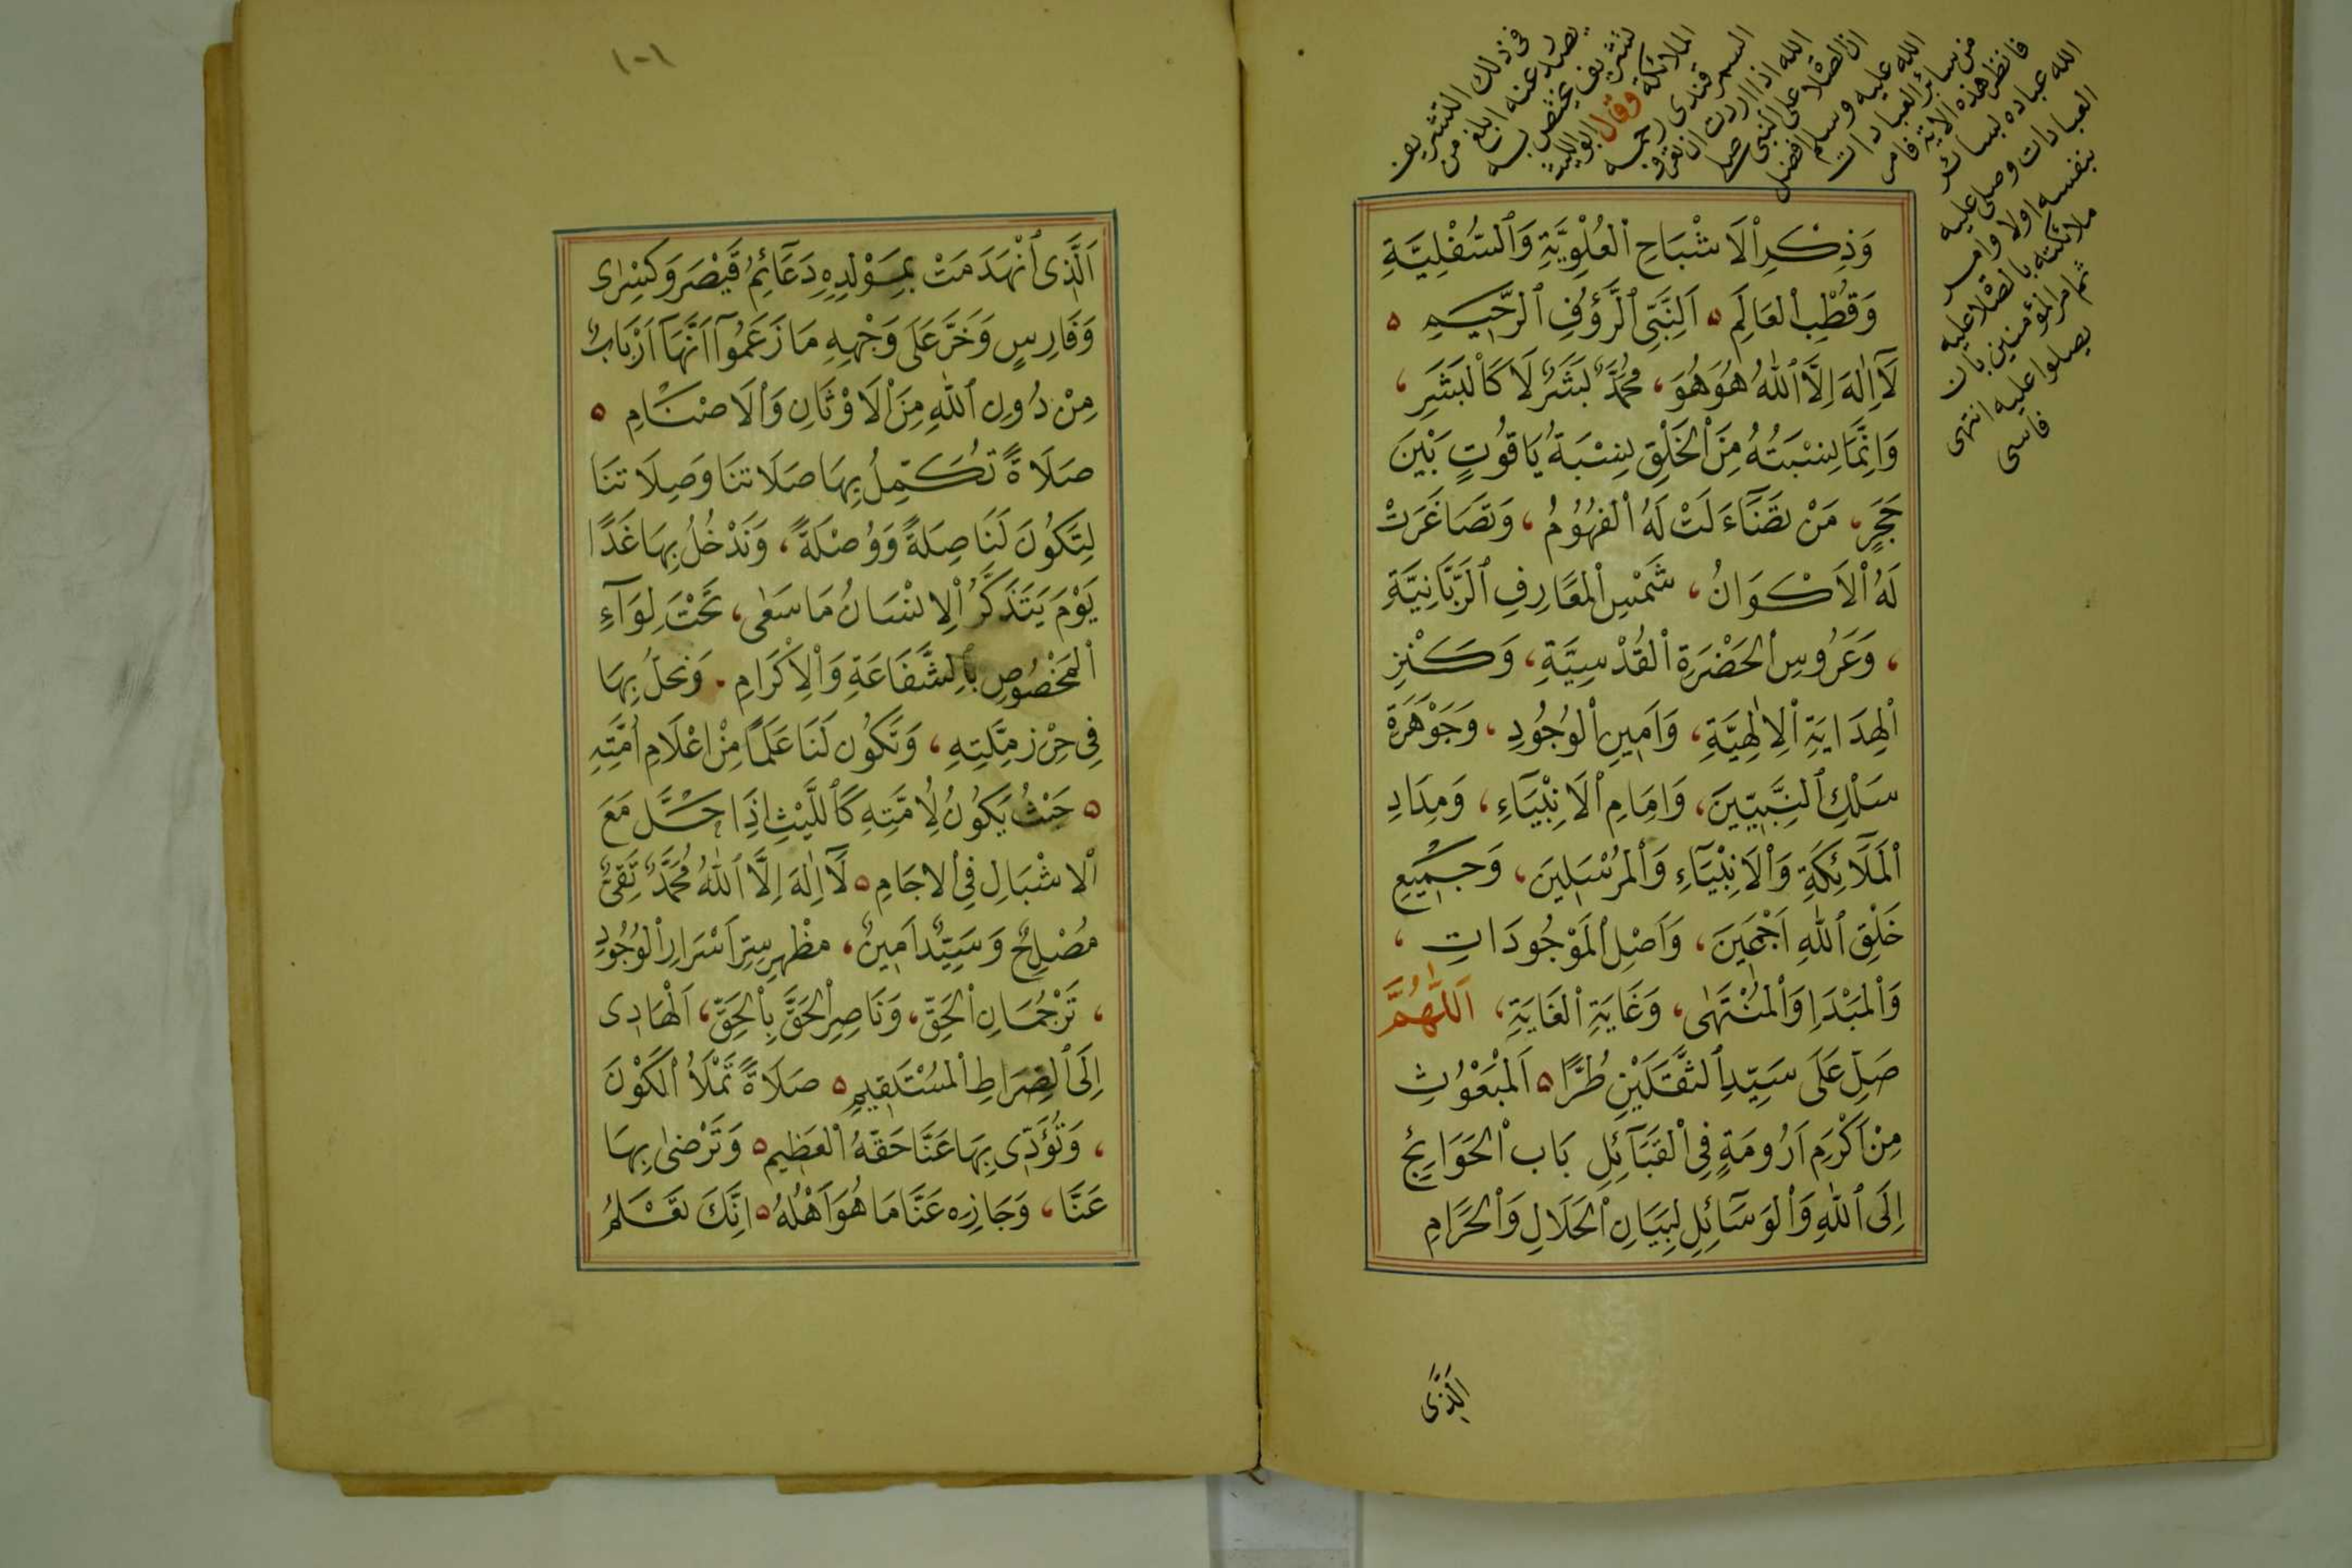 فى ذلك التشريف
يصدر عنه ابلغ من
تشريف يختص به
الملائكة وقال ابو الليث
السمرقندى رحمه
الله اذا اردت ان تعرف
ان الصلاة على النبى صلى
الله عليه وسلم افضل
من سائر العبادات
فانظر هذه الاية فامر
الله عباده بسائر
العبادات وصلى عليه
بنفسه اولا وامر
ملائكته بالصلاة عليه
ثم امر المؤمنين بان
يصلوا عليه انتهى
فاسى
وَذِكْرِ ٱلْاَشْبَاحِ ٱلْعُلْوِيَّةِ وَٱلسُّفْلِيَّةِ
وَقُطْبِ ٱلْعَالَمِ ۝ اَلنَّبِيِّ ٱلرَّؤُفِ ٱلرَّحِيمِ ۝
لَآ اِلٰهَ اِلَّا ٱللّٰهُ هُوَ هُوَ، مُحَمَّدٌ بَشَرٌ لَا كَٱلْبَشَرِ،
وَاِنَّمَا نِسْبَتُهُ مِنَ ٱلْخَلْقِ نِسْبَةُ يَاقُوتٍ بَيْنَ
حَجَرٍ، مَنْ تَضَآءَلَتْ لَهُ ٱلْفُهُوُمُ، وَتَصَاغَرَتْ
لَهُ ٱلْاَكْوَانُ، شَمْسِ ٱلْمَعَارِفِ ٱلرَّبَّانِيَّةِ
، وَعَرُوسِ ٱلْحَضْرَةِ ٱلْقُدْسِيَّةِ، وَكَنْزِ
ٱلْهِدَايَةِ ٱلْاِلٰهِيَّةِ، وَاَمِينِ ٱلْوُجُودِ، وَجَوْهَرَةِ
سَلْكِ ٱلنَّبِيِّينَ، وَاِمَامِ ٱلْاَنْبِيَآءِ، وَمِدَادِ
ٱلْمَلَآئِكَةِ وَٱلْاَنْبِيَآءِ وَٱلْمُرْسَلِينَ، وَجَمِيعِ
خَلْقِ ٱللّٰهِ اَجْمَعِينَ، وَاَصْلِ ٱلْمَوْجُودَاتِ،
وَٱلْمَبْدَاِ وَٱلْمُنْتَهٰى، وَغَايَةِ ٱلْغَايَةِ، اَللّٰهُمَّ
صَلِّ عَلَى سَيِّدِ ٱلثَّقَلَيْنِ طُرًّا ۝ اَلْمَبْعُوْثِ
مِنْ اَكْرَمِ اَرُومَةٍ فِى ٱلْقَبَآئِلِ بَاب ٱلْحَوَايِجِ
اِلَى ٱللّٰهِ وَٱلْوَسَآئِلِ لِبَيَانِ ٱلْحَلَالِ وَٱلْحَرَامِ
اَلَّذِى
١٠١
اَلَّذِى ٱنْهَدَمَتْ بِمَوْلِدِهِ دَعَآئِمُ قَيْصَرَ وَكِسْرٰى
وَفَارِسٍ وَخَرَّ عَلَى وَجْهِهِ مَا زَعَمُوٓا اَنَّهَآ اَرْبَابٌ
مِنْ دُونِ ٱللّٰهِ مِنَ ٱلْاَوْثَانِ وَٱلْاَصْنَامِ ۝
صَلَاةً تُكَمِّلُ بِهَا صَلَاتَنَا وَصِلَاتَنَا
لِتَكُونَ لَنَا صِلَةً وَوُصْلَةً، وَنَدْخُلُ بِهَا غَدًا
يَوْمَ يَتَذَكَّرُ ٱلْاِنْسَانُ مَا سَعٰى، تَحْتَ لِوَآءِ
ٱلْمَخْصُوصِ بِٱلشَّفَاعَةِ وَٱلْاِكْرَامِ، وَنَحُلُّ بِهَا
فِى حِرْزِ مِلَّتِهِ، وَتَكُونَ لَنَا عَلَمًا مِنْ اَعْلَامِ اُمَّتِهِ
۝ حَيْثُ يَكُونُ لِاُمَّتِهِ كَٱللَّيْثِ اِذَا حَلَّ مَعَ
ٱلاشْبَالِ فِى ٱلاجَامِ ۝ لَآ اِلٰهَ اِلَّا ٱللّٰهُ مُحَمَّدٌ تَقِىٌّ
مُصْلِحٌ وَسَيِّدٌ اَمِينٌ، مَظْهَرِ سِرِّ اَسْرَارِ ٱلْوُجُودِ
، تَرْجُمَانِ ٱلْحَقِّ، وَنَاصِرِ ٱلْحَقِّ بِٱلْحَقِّ، اَلْهَادِى
اِلَى ٱلصِّرَاطِ ٱلْمُسْتَقِيمِ ۝ صَلَاةً تَمْلَأُ ٱلْكَوْنَ
، وَتُؤَدِّى بِهَا عَنَّا حَقَّهُ ٱلْعَظِيم ۝ وَتَرْضٰى بِهَا
عَنَّا، وَجَازِه عَنَّا مَا هُوَ اَهْلُهُ ۝ اِنَّكَ تَعْلَمُ